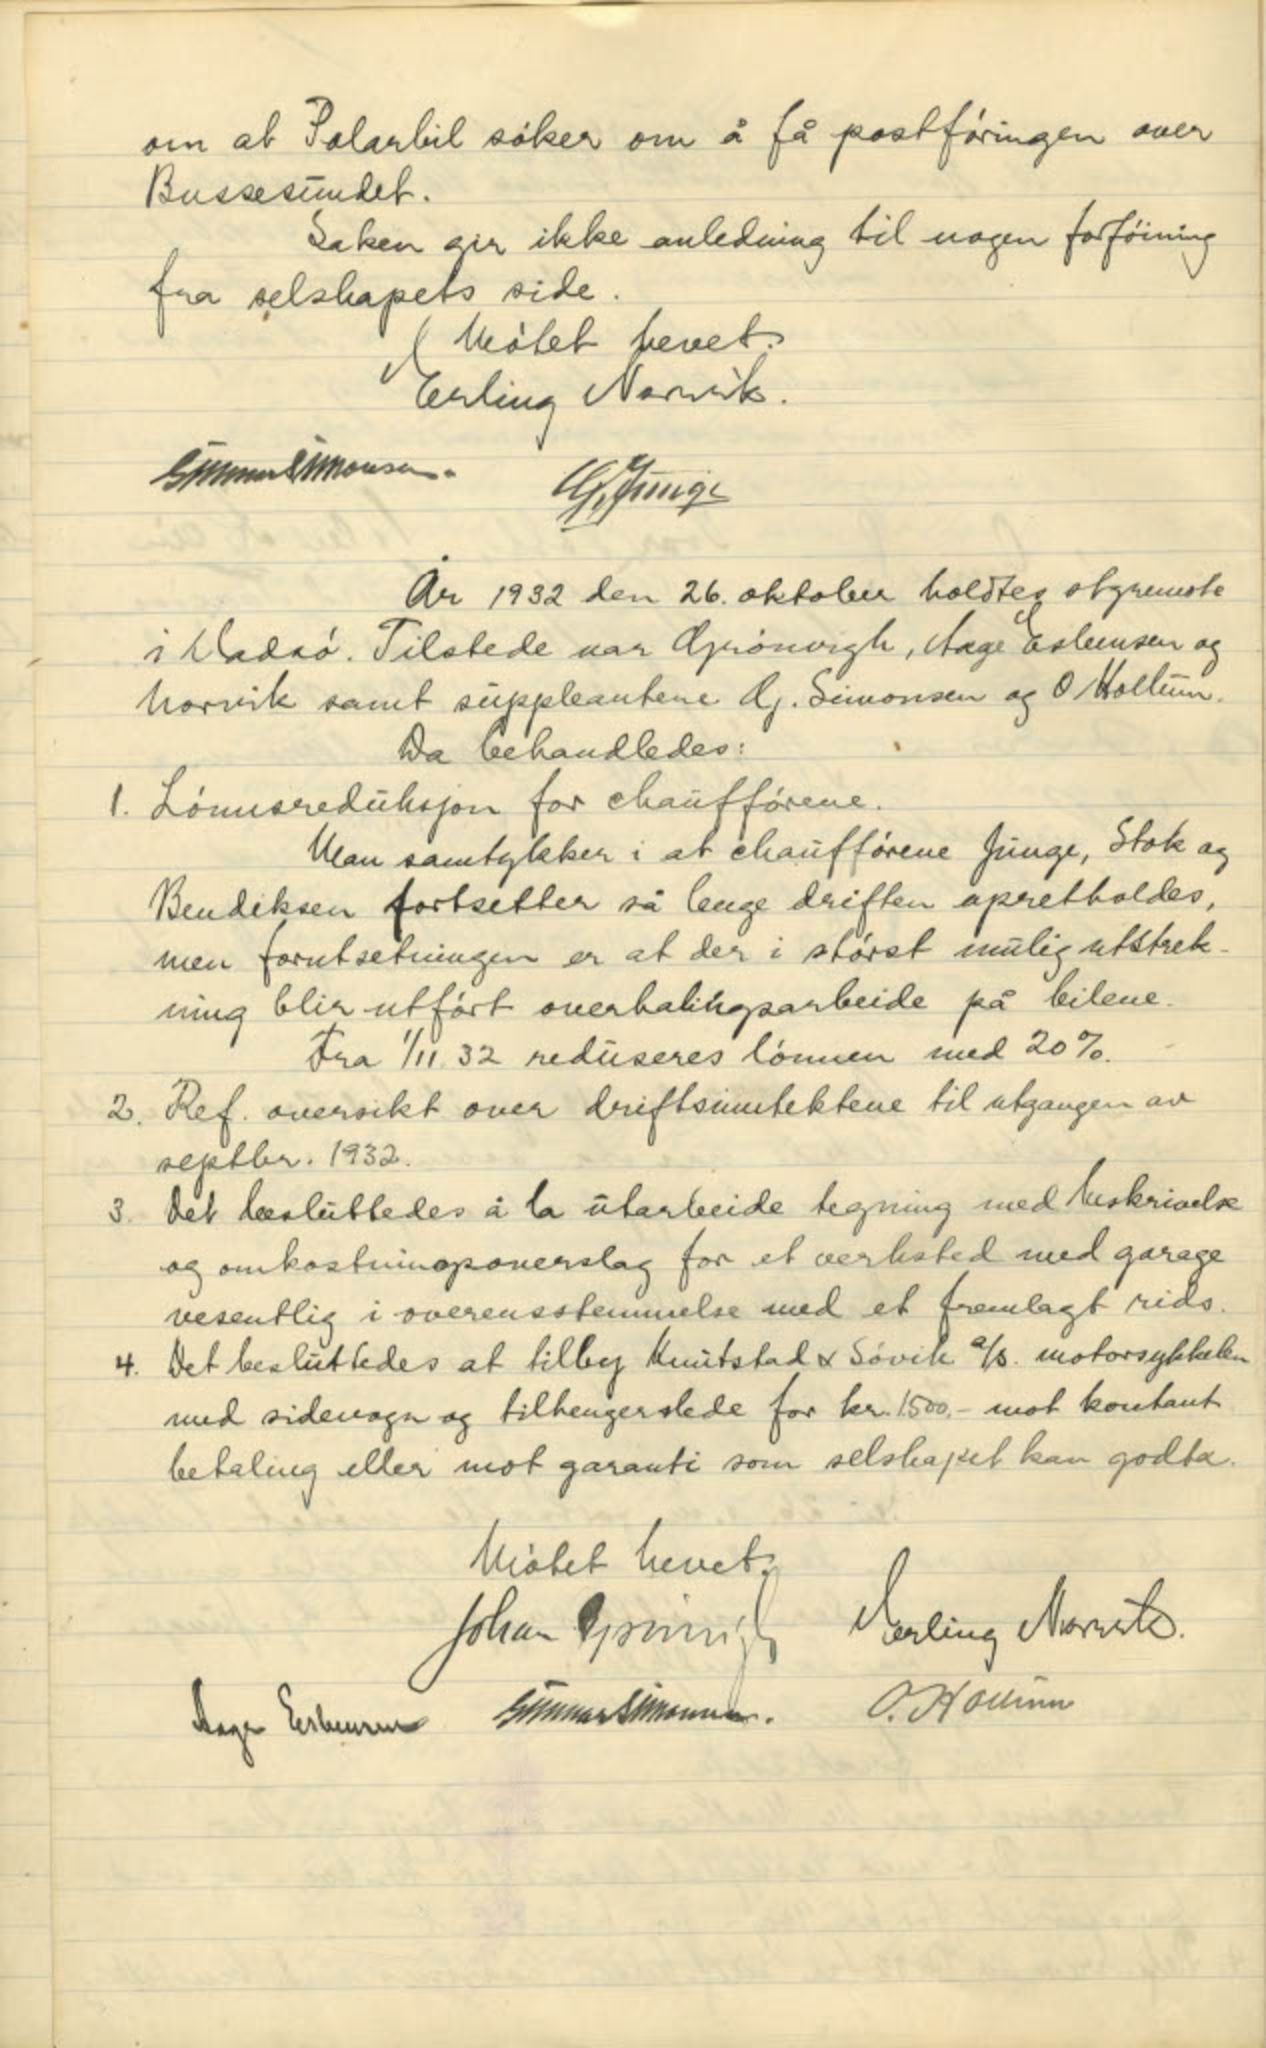 om at Polarbil söker om å få postföringen over
Bussesundet.
Saken gir ikke anledning til nogen forföining
fra selskapets side.
Mötet hevet.
Erling Norvik.
Gunnar Simonsen. G. Junge
År 1932 den 26. oktober holdtes styremöte
i Vadsö. Tilstede var Grönvigh, Aage Esbensen og
Norvik samt suppleantene G. Simonsen og O Hollum.
Da behandledes:
1. Lönnsreduksjon for chaufförene.
Man samtykker i at chaufförene Junge, Stok og
Bendiksen fortsetter så lenge driften opretholdes,
men forutsetningen er at der i störst mulig utstrek-
ning blir utfört overhalingsarbeide på bilene.
Fra 1/11 32 reduseres lönnen med 20%.
2. Ref. oversikt over driftsinntektene til utgangen av
septbr. 1932.
3. Det besluttedes å la utarbeide tegning med beskrivelse
og omkostningsoverslag for et verksted med garage
vesentlig i overensstemmelse med et fremlagt rids.
4. Det besluttedes at tilby Knutstad & Sövik a/s. motorsykkelen
med sidevogn og tilhengerslede for kr. 1500.- mot kontant
betaling eller mot garanti som selskapet kan godta.
Mötet hevet.
Johan Grönvigh Erling Norvik.
Aage Esbensen Gunnar Simonsen. O. Hollum